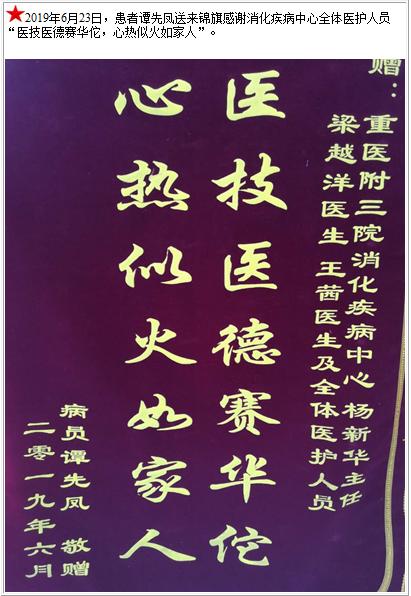 2019年6月23日，患者谭先凤送来锦旗感谢消化疾病中心全体医护人员
“医技医德赛华佗，心热似火如家人”。
赠：
重医附三院消化疾病中心 杨新华主任
梁越洋医生 王茜医生及全体医护人员
医技医德赛华佗
心热似火如家人
病员谭先凤 敬赠
二零一九年六月